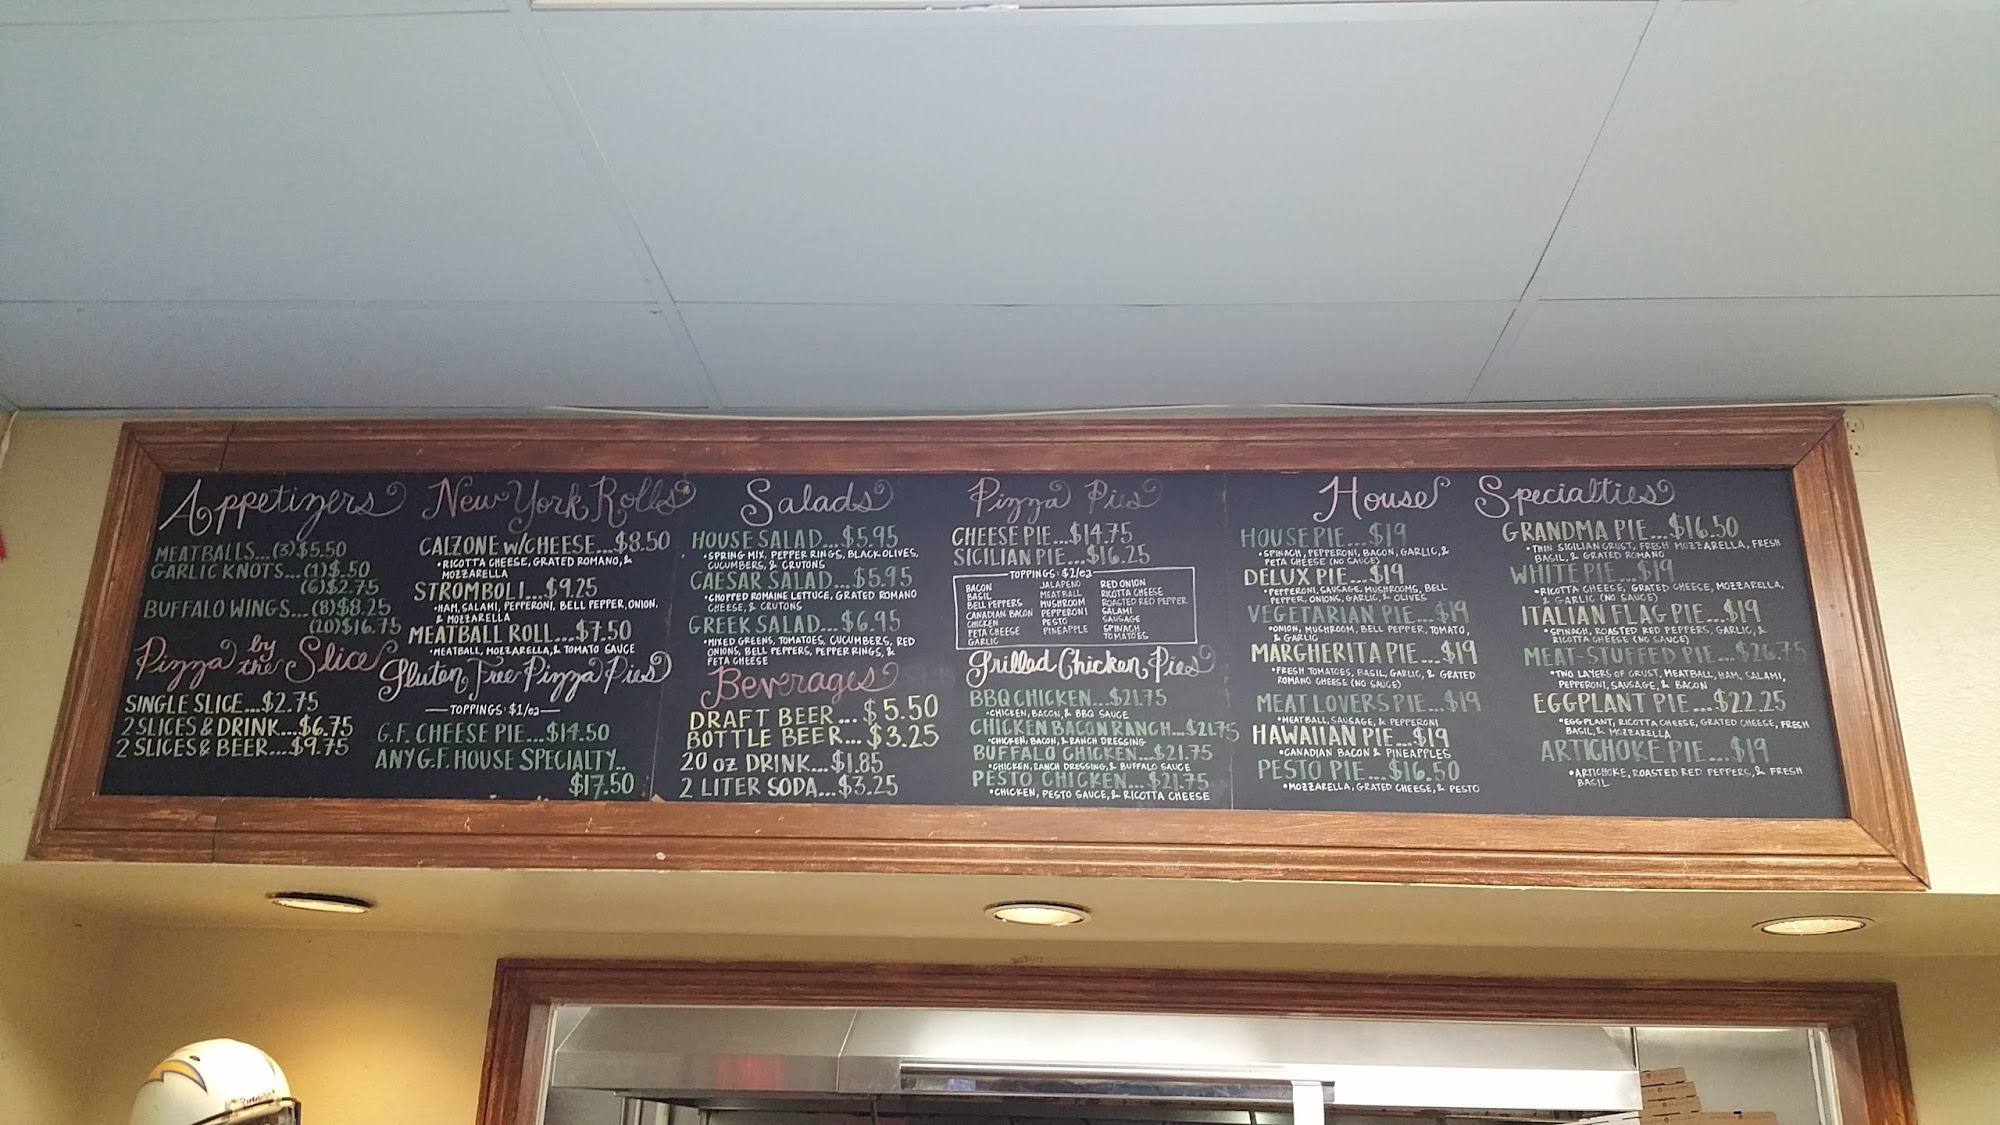 Appetizers
MEATBALLS...(3)$5.50
GARLIC KNOTS...(1)$.50
(6)$2.75
BUFFALO WINGS...(8)$8.25
(20)$16.75
Pizza by the Slice
SINGLE SLICE...$2.75
2 SLICES & DRINK...$6.75
2 SLICES & BEER...$9.75
New York Rolls
CALZONE W/CHEESE...$8.50
•RICOTTA CHEESE, GRATED ROMANO, &
MOZZARELLA
STROMBOLI...$9.25
•HAM, SALAMI, PEPPERONI, BELL PEPPER, ONION,
& MOZZARELLA
MEATBALL ROLL...$7.50
•MEATBALL, MOZZARELLA, & TOMATO SAUCE
Gluten Free Pizza Pies
TOPPINGS: $1/ea
G.F. CHEESE PIE...$14.50
ANY G.F. HOUSE SPECIALTY..
$17.50
Salads
HOUSE SALAD...$5.95
•SPRING MIX, PEPPER RINGS, BLACK OLIVES,
CUCUMBERS, & CRUTONS
CAESAR SALAD...$5.95
•CHOPPED ROMAINE LETTUCE, GRATED ROMANO
CHEESE, & CRUTONS
GREEK SALAD...$6.95
•MIXED GREENS, TOMATOES, CUCUMBERS, RED
ONIONS, BELL PEPPERS, PEPPER RINGS, &
FETA CHEESE
Beverages
DRAFT BEER...$5.50
BOTTLE BEER...$3.25
20 oz DRINK...$1.85
2 LITER SODA...$3.25
Pizza Pies
CHEESE PIE...$14.75
SICILIAN PIE...$16.25
TOPPINGS: $2/ea
BACON
BASIL
BELL PEPPERS
CANADIAN BACON
CHICKEN
FETA CHEESE
GARLIC
JALAPENO
MEATBALL
MUSHROOM
PEPPERONI
PESTO
PINEAPPLE
RED ONION
RICOTTA CHEESE
ROASTED RED PEPPER
SALAMI
SAUSAGE
SPINACH
TOMATOES
Grilled Chicken Pies
BBQ CHICKEN...$21.75
•CHICKEN, BACON, & BBQ SAUCE
CHICKEN BACON RANCH...$21.75
•CHICKEN, BACON, & RANCH DRESSING
BUFFALO CHICKEN...$21.75
•CHICKEN, RANCH DRESSING, & BUFFALO SAUCE
PESTO CHICKEN...$21.75
•CHICKEN, PESTO SAUCE, & RICOTTA CHEESE
House Specialties
HOUSE PIE...$19
•SPINACH, PEPPERONI, BACON, GARLIC, &
FETA CHEESE (NO SAUCE)
DELUX PIE...$19
•PEPPERONI, SAUSAGE, MUSHROOMS, BELL
PEPPER, ONIONS, GARLIC, & OLIVES
VEGETARIAN PIE...$19
•ONION, MUSHROOM, BELL PEPPER, TOMATO,
& GARLIC
MARGHERITA PIE...$19
•FRESH TOMATOES, BASIL, GARLIC, & GRATED
ROMANO CHEESE (NO SAUCE)
MEAT LOVERS PIE...$19
•MEATBALL, SAUSAGE, & PEPPERONI
HAWAIIAN PIE...$19
•CANADIAN BACON & PINEAPPLES
PESTO PIE...$16.50
•MOZZARELLA, GRATED CHEESE, & PESTO
GRANDMA PIE...$16.50
•THIN SICILIAN CRUST, FRESH MOZZARELLA, FRESH
BASIL, & GRATED ROMANO
WHITE PIE...$19
•RICOTTA CHEESE, GRATED CHEESE, MOZZARELLA,
& GARLIC (NO SAUCE)
ITALIAN FLAG PIE...$19
•SPINACH, ROASTED RED PEPPERS, GARLIC, &
RICOTTA CHEESE (NO SAUCE)
MEAT-STUFFED PIE...$26.75
•TWO LAYERS OF CRUST, MEATBALL, HAM, SALAMI,
PEPPERONI, SAUSAGE, & BACON
EGGPLANT PIE...$22.25
•EGGPLANT, RICOTTA CHEESE, GRATED CHEESE, FRESH
BASIL, & MOZZARELLA
ARTICHOKE PIE...$19
•ARTICHOKE, ROASTED RED PEPPERS, & FRESH
BASIL